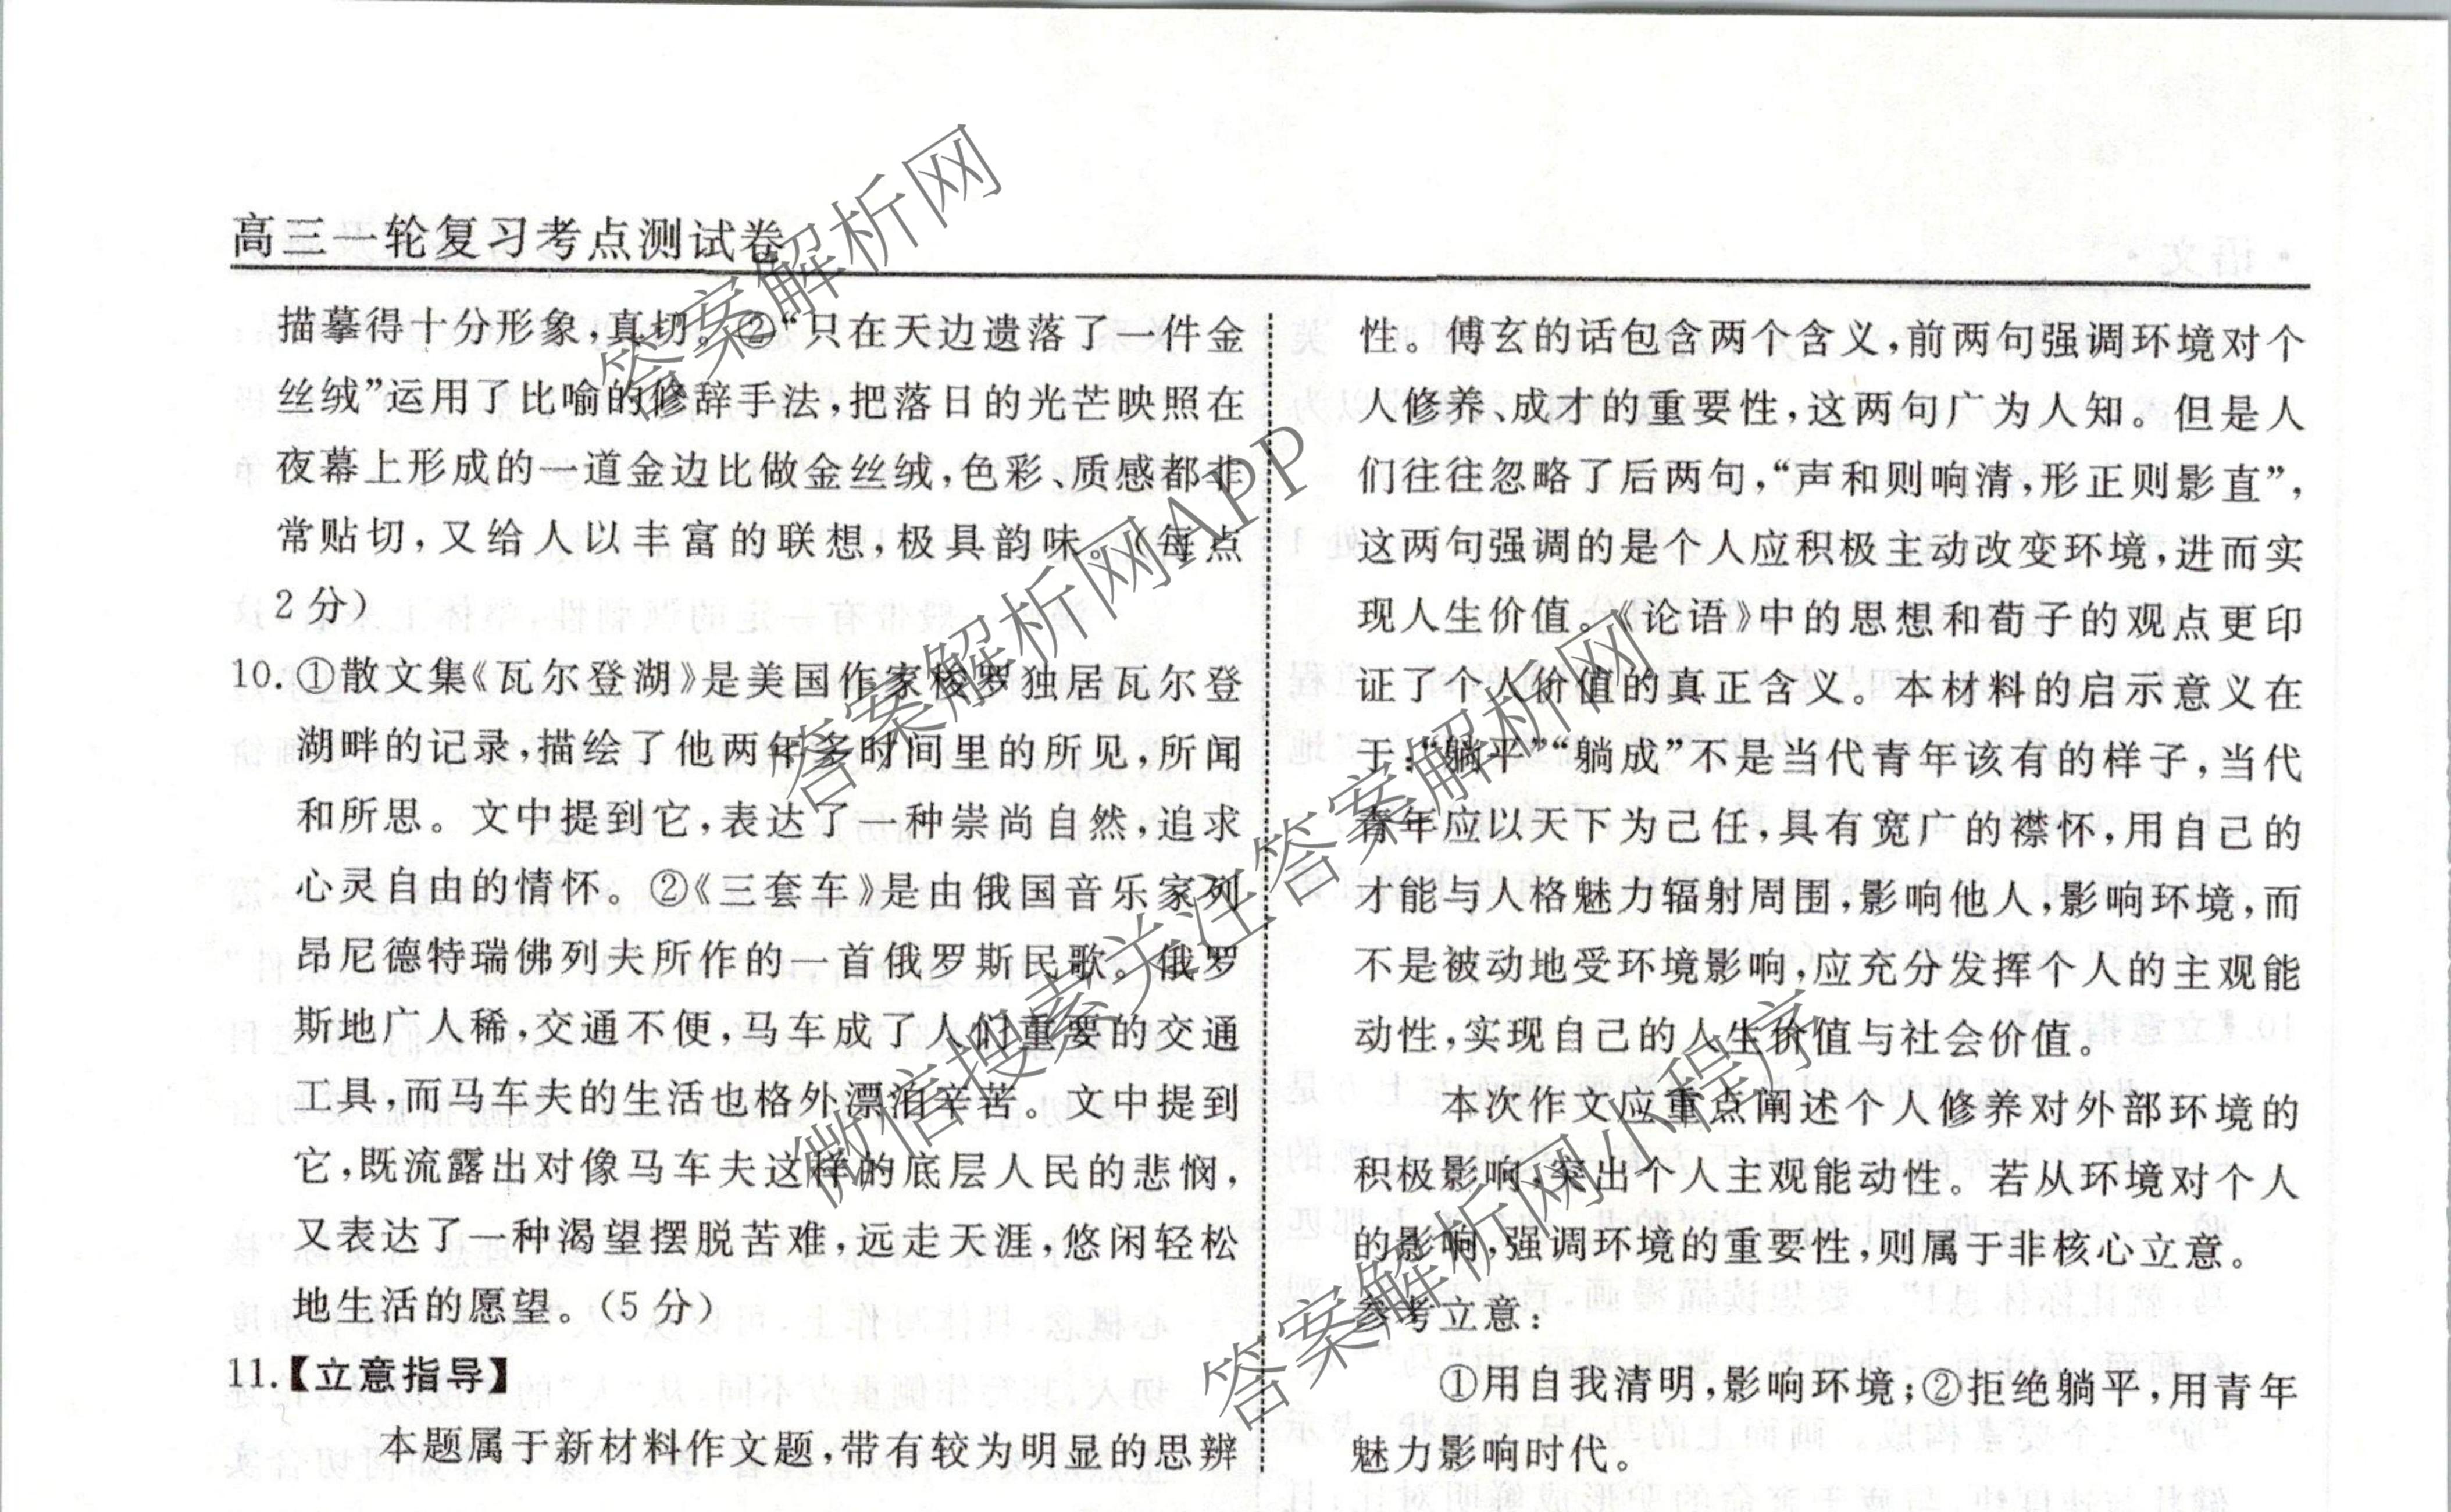 高三一轮复习考点测试卷
描摹得十分形象,真切。②“只在天边遗落了一件金
丝绒”运用了比喻的修辞手法,把落日的光芒映照在
夜幕上形成的一道金边比做金丝绒,色彩、质感都非
常贴切,又给人以丰富的联想,极具韵味。(每点
2分)
10.①散文集《瓦尔登湖》是美国作家梭罗独居瓦尔登
湖畔的记录,描绘了他两年多时间里的所见,所闻
和所思。文中提到它,表达了一种崇尚自然,追求
心灵自由的情怀。②《三套车》是由俄国音乐家列
昂尼德特瑞佛列夫所作的一首俄罗斯民歌。俄罗
斯地广人稀,交通不便,马车成了人们重要的交通
工具,而马车夫的生活也格外漂泊辛苦。文中提到
它,既流露出对像马车夫这样的底层人民的悲悯,
又表达了一种渴望摆脱苦难,远走天涯,悠闲轻松
地生活的愿望。(5分)
11.【立意指导】
本题属于新材料作文题,带有较为明显的思辨
性。傅玄的话包含两个含义,前两句强调环境对个
人修养、成才的重要性,这两句广为人知。但是人
们往往忽略了后两句,“声和则响清,形正则影直”,
这两句强调的是个人应积极主动改变环境,进而实
现人生价值。《论语》中的思想和荀子的观点更印
证了个人价值的真正含义。本材料的启示意义在
于:“躺平”“躺成”不是当代青年该有的样子,当代
青年应以天下为己任,具有宽广的襟怀,用自己的
才能与人格魅力辐射周围,影响他人,影响环境,而
不是被动地受环境影响,应充分发挥个人的主观能
动性,实现自己的人生价值与社会价值。
本次作文应重点阐述个人修养对外部环境的
积极影响,突出个人主观能动性。若从环境对个人
的影响,强调环境的重要性,则属于非核心立意。
参考立意:
①用自我清明,影响环境;②拒绝躺平,用青年
魅力影响时代。
答案解析网
答案解析网APP
微信搜索关注答案解析网
答案解析网小程序